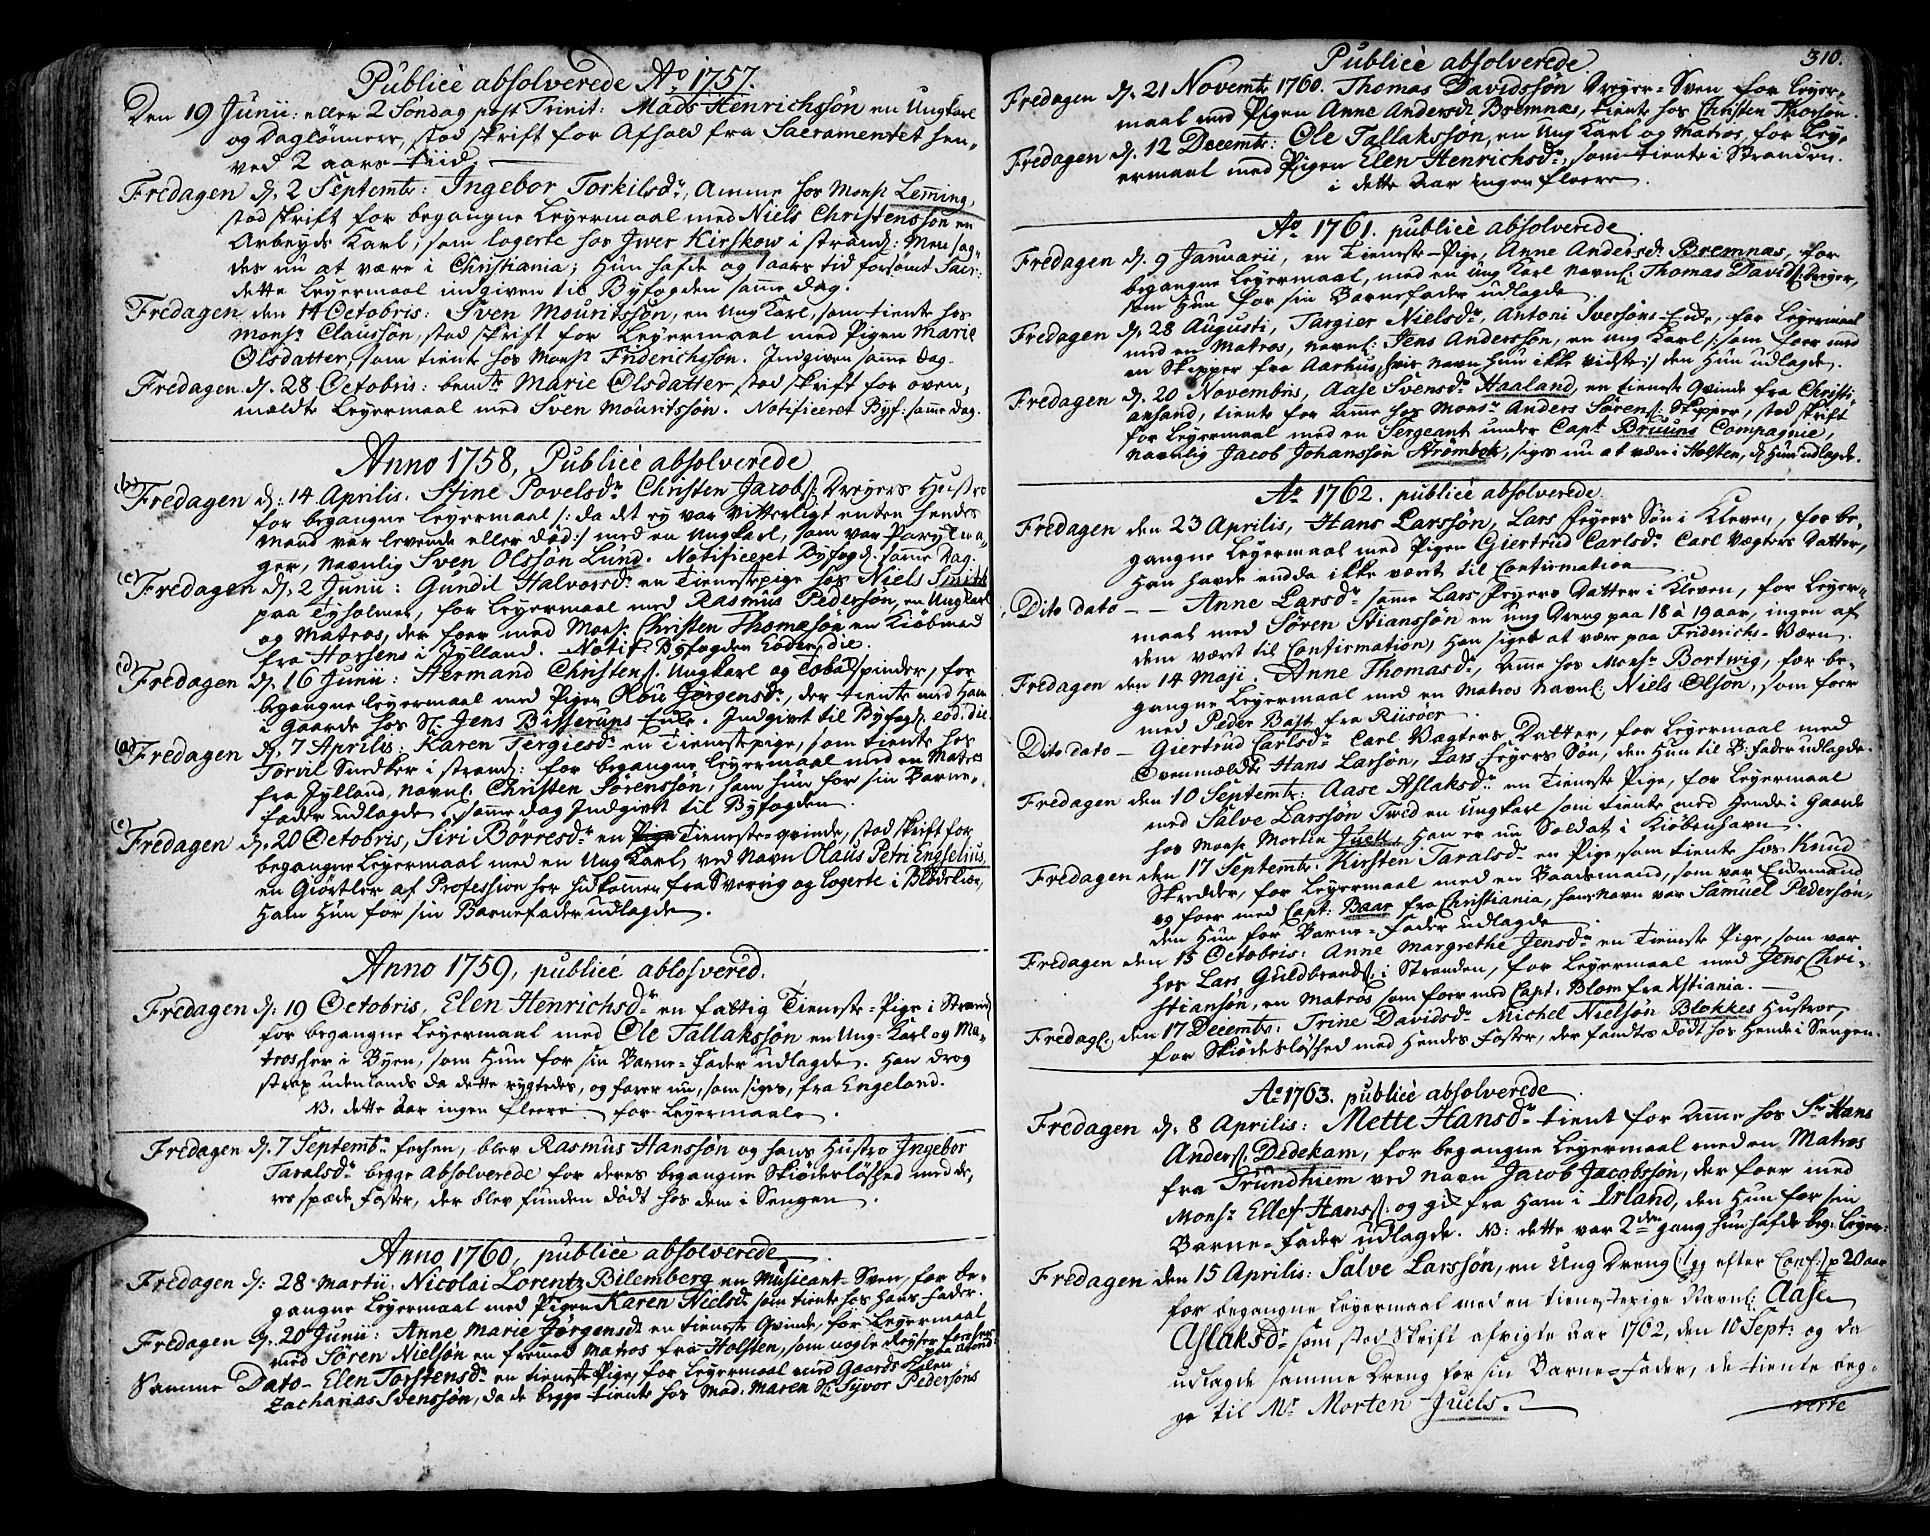 Publicè absolverede Aº 1757.
Den 19 Junii: eller 2 Søndag post Trinit: Mads Henrichssøn en Ungkarl
og Daglønner, stod skrift for Afhold fra Sacramentet hen-
ved 2 aars tiid.
Fredagen d: 2 Septembr: Ingebor Torkilsdr, Amme hos Monsr Leming,
stod skrift for begangne Leyermaal med Niels Christenssøn en
Arbeyds Karl, som logerte hos Iwer Kirskow i strand: Men sag
des nu at være i Christiania; Hun hafde og 1 aars tid forsømt Sacr:
dette Leyermaal indgiven til Byfogden samme dag.
Fredagen den 14 Octobris: Sven Mouritssøn, en Ung Karl, som tiente hos
Monsr Claussøn, stod skrift for Leyermaal med Pigen Marie
Olsdatter, som tient hos Monsr Friderichssøn. Indgiven samme dag.
Fredagen d. 28 Octobris: bemte Marie Olsdatter stod skrift for oven-
mældte Leyermaal med Sven Mouritssøn. Notificeret Byf: samme dag.
Anno 1758, Publicè absolverede
(b) Fredagen d: 14 Aprilis. Stine Povelsdr Christen Jacobs: Dreyers Hustro
for begangne Leyermaal /: da det ey var vitterligt enten hendes
Mand var levende eller død :/ med en Ungkarl, som var Paryk ma-
ger, navnlig Sven Olssøn Lund. Notificeret Byfogd: samme Dag.
(c) Fredagen d. 2 Junii: Gundil Halvorsdr en Tienestepige hos Niels Smith
paa Tyholmen, for Leyermaal med Rasmus Pedersøn, en Ungkarl
og Matros, der foer med Monsr Christen Thomæsøn en Kiøbmand
fra Horsens i Jylland. Notif. Byfogden Eodem die.
(d) Fredagen d. 16 Junii: Hermand Christens: Ungkarl og Tobakspinder, for
begangne Leyermaal med Pigen Olou Jørgensdr, der tiente med Ham
i Gaarde hos Sl. Jens Bisserups Enke. Indgivet til Byfogd. eod. die
(a) Fredagen d. 7 Aprilis: Karen Tergiesdr en Tienestepige, som tiente hos
Torvil Snedker i strand: for begangne Leyermaal med en Matros
fra Jylland, navnl: Christen Sørenssøn, ham hun for sin Barne-
fader udlagde, samme dag Indgivet til Byfogden.
(e) Fredagen d. 20 Octobris, Siri Borresdr en Pige Tieneste-qvinde, stod skrift for
begangne Leyermaal med en Ung Karl, ved Navn Olaus Petri Engselius,
en Giørtler af Profession her hidkommen fra Sverrig og logerte i Blødekiær,
Ham Hun for sin Barnefader udlagde.
Anno 1759, publicè ablosvered.
Fredagen d: 19 Octobris, Elen Henrichsdr en fattig Tieneste-Pige i Strand
for begangne Leyermaal med Ole Tallakssøn en Ung-Karl og Ma-
tros her i Byen, som Hun for sin Barne-fader udlagde. Han drog
strax udenlands da dette rygtedes, og farer nu, som siges, fra Engeland.
NB. dette Aar ingen fleere for Leyermaale.
Fredagen d. 7 Septembr forhen, blev Rasmus Hanssøn og hans Hustro Ingebor
Taralsdr begge Absolverede for deres begangne Skiødesløshed med de-
res spæde Foster, der blev funden dødt hos dem i Sengen.
Anno 1760, publicè absolverede
Fredagen d: 28 Martii. Nicolai Lorentz Bilemberg en Musicant-Sven, for be-
gangne Leyermaal med Pigen Karen Nielsdr som tiente hos Hans Fader.
Fredagen d. 20 Junii: Anne Marie Jørgensdr en tieneste Qvinde, for Leyermaal
med Søren Nielsøn en fremmed Matros fra Holsten, som nogle Reyser foer her
Samme Dato - Elen Torstensdr en tieneste Pige, for Leyermaal med Gaards Karlen
Zacharias Svenssøn, da de begge tiente hos Mad. Maren Sl. Syvor Pedersøns
310.
Publicè absolverede
Fredagen d. 21 Novembr 1760. Thomas Davidssøn Dreyer-Sven for Leyer-
maal med Pigen Anne Andersdr Bremnæs, tiente hos Christen Thorsøn.
Fredagen d. 12 Decembr: Ole Tallakssøn, en Ung Karl og Matros, for Ley-
ermaal med Pigen Elen Henrichsdr, som tiente i Stranden.
i dette Aar ingen fleere.
Aº 1761. publicè absolverede.
Fredagen d. 9 Januarii, en Tieneste-Pige, Anne Andersdr Bremnæs, for
begangne Leyermaal, med en Ung Karl navnl: Thomas Davids: Dreyer,
som Hun for sin Barnefader udlagde.
Fredagen d. 28 Augusti, Targier Nielsdr, Antoni Iversøns Enke, for Leyermaal
med en Matros, navnl: Jens Anderssøn, en Ung Karl /: som foer med
en Skipper fra Aarhus, hvis navn Hun ikke vidste :/ den Hun udlagde.
Fredagen d. 20 Novembris, Aase Svensdr Haaland, en tieneste Qvinde fra Christi-
ansand, tiente for Amme hos Monsr Anders Sørens: Skipper, stod skrift
for Leyermaal med en Sergeant under Capt. Bruuns Compagnie,
navnlig Jacob Johanssøn Strømbek, siges nu at være i Holsten, d. Hun udlagde.
Aº 1762. publicè absolverede.
Fredagen den 23 Aprilis, Hans Larssøn, Lars Feyers Søn i Kleven, for be-
gangne Leyermaal med Pigen Giertrud Carlsdr Carl Vægters Datter,
Han havde endda ikke været til Confirmation
Dito dato - - Anne Larsdr samme Lars Feyers Datter i Kleven, for Leyer-
maal med Søren Stianssøn en ung Dreng paa 18 à 19 aar, ingen af
dem været til Confirmation, Han siges at være paa Friderichs-Værn.
Fredagen den 14 Maji. Anne Thomasdr, Amme hos Monsr Bortwig, for be-
gangne Leyermaal med en Matros Navnl: Niels Olson, som foer
med Peder Bast fra Riisøer.
Dito dato - Giertrud Carlsdr Carl Vægters Datter, for Leyermaal med
Ovenmældte Hans Larsøn, Lars Feyers Søn, den Hun til B: fader udlagde.
Fredagen den 10 Septembr: Aase Aslaksdr en Tieneste Pige, for Leyermaal
med Salve Larssøn Tvid en Ungkarl som tiente med Hende i Gaarde
hos Monsr Morten Juell, Han er nu Soldat i Kiøbenhavn.
Fredagen den 17 Septembr: Kirsten Taralsdr en Pige, som tiente hos Knud
Skredder, for Leyermaal med en Baadsmand, som var Enkemand
og foer med Capt: Baar fra Christiania, hans Navn var Samuel Pedersøn,
den Hun for Barne-fader udlagde
Fredagen den 15 Octobris: Anne Margrethe Jensdr en Tieneste Pige, som var
hos Lars Guldbrands: i Stranden, for Leyermaal med Jens Chri-
stiansøn, en Matros som foer med Capt. Blom fra Xstiania.
Fredagl: den 17 Decembr: Trine Davidsdr Michel Nielsøn Blokkes Hustroe,
for Skiødesløshed med Hendes Foster, der fandtes dødt hos Hende i Sengen.
Aº 1763. publicè absolverede
Fredagen d: 8 Aprilis: Mette Hansdr tient for Amme hos Sr Hans
Anders: Dedekam, for begangne Leyermaal med en Matros
fra Trundhiem ved navn Jacob Jacobssøn, der foer med
Monsr Ellef Hans: og gik fra Ham i Irland, den Hun for sin
Barne-fader udlagde. NB: dette var 2den gang hun hafde beg: Leyer:
Fredagen den 15 Aprilis: Salve Larssøn, en Ung Dreng efter Conf: 20 aar
for begangne Leyermaal med en tienestepige Navnl: Aase
Aslaksdr som stod Skrift afvigte Aar 1762, den 10 Sept: og da
udlagde samme Dreng for sin Barne-fader, de tiente beg-
ge til Mr Morten Juels.
verte